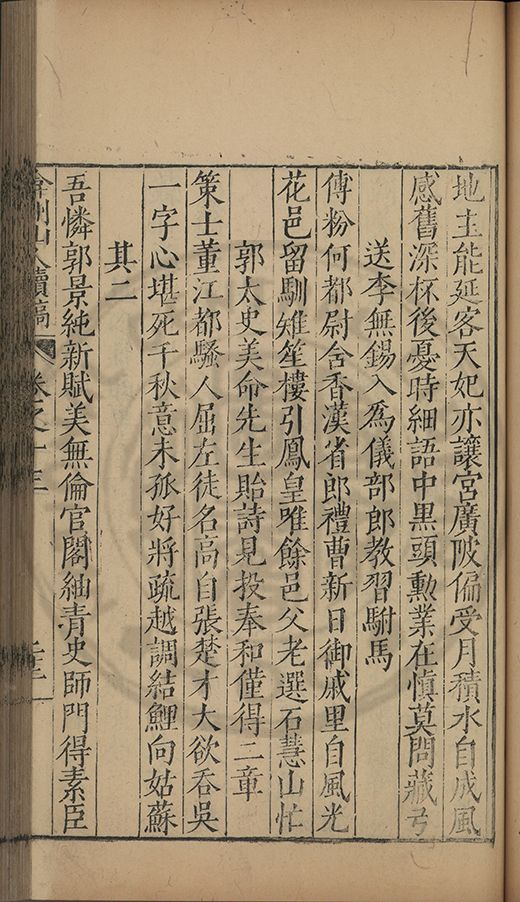 地主能延客天妃亦讓宮廣陂偏受月積水自成風
感舊深杯後憂時細語中黑頭勲業在慎莫問藏弓
送李無錫入為儀部郎教習駙馬
傅粉何都尉含香漢省郎禮曹新日御戚里自風光
花邑留馴雉笙樓引鳳皇唯餘邑父老選石慧山忙
郭太史美命先生貽詩見投奉和僅得二章
策士董江都騷人屈左徒名高自張楚才大欲吞吳
一字心堪死千秋意未孤好將疏越調結鯉向姑蘇
其二
吾憐郭景純新賦美無倫官閣紬青史師門得素臣
山人續稿 卷之十三